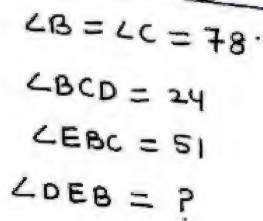 ∠B = ∠C = 78.
∠BCD = 24
∠EBC = 51
∠DEB = ?